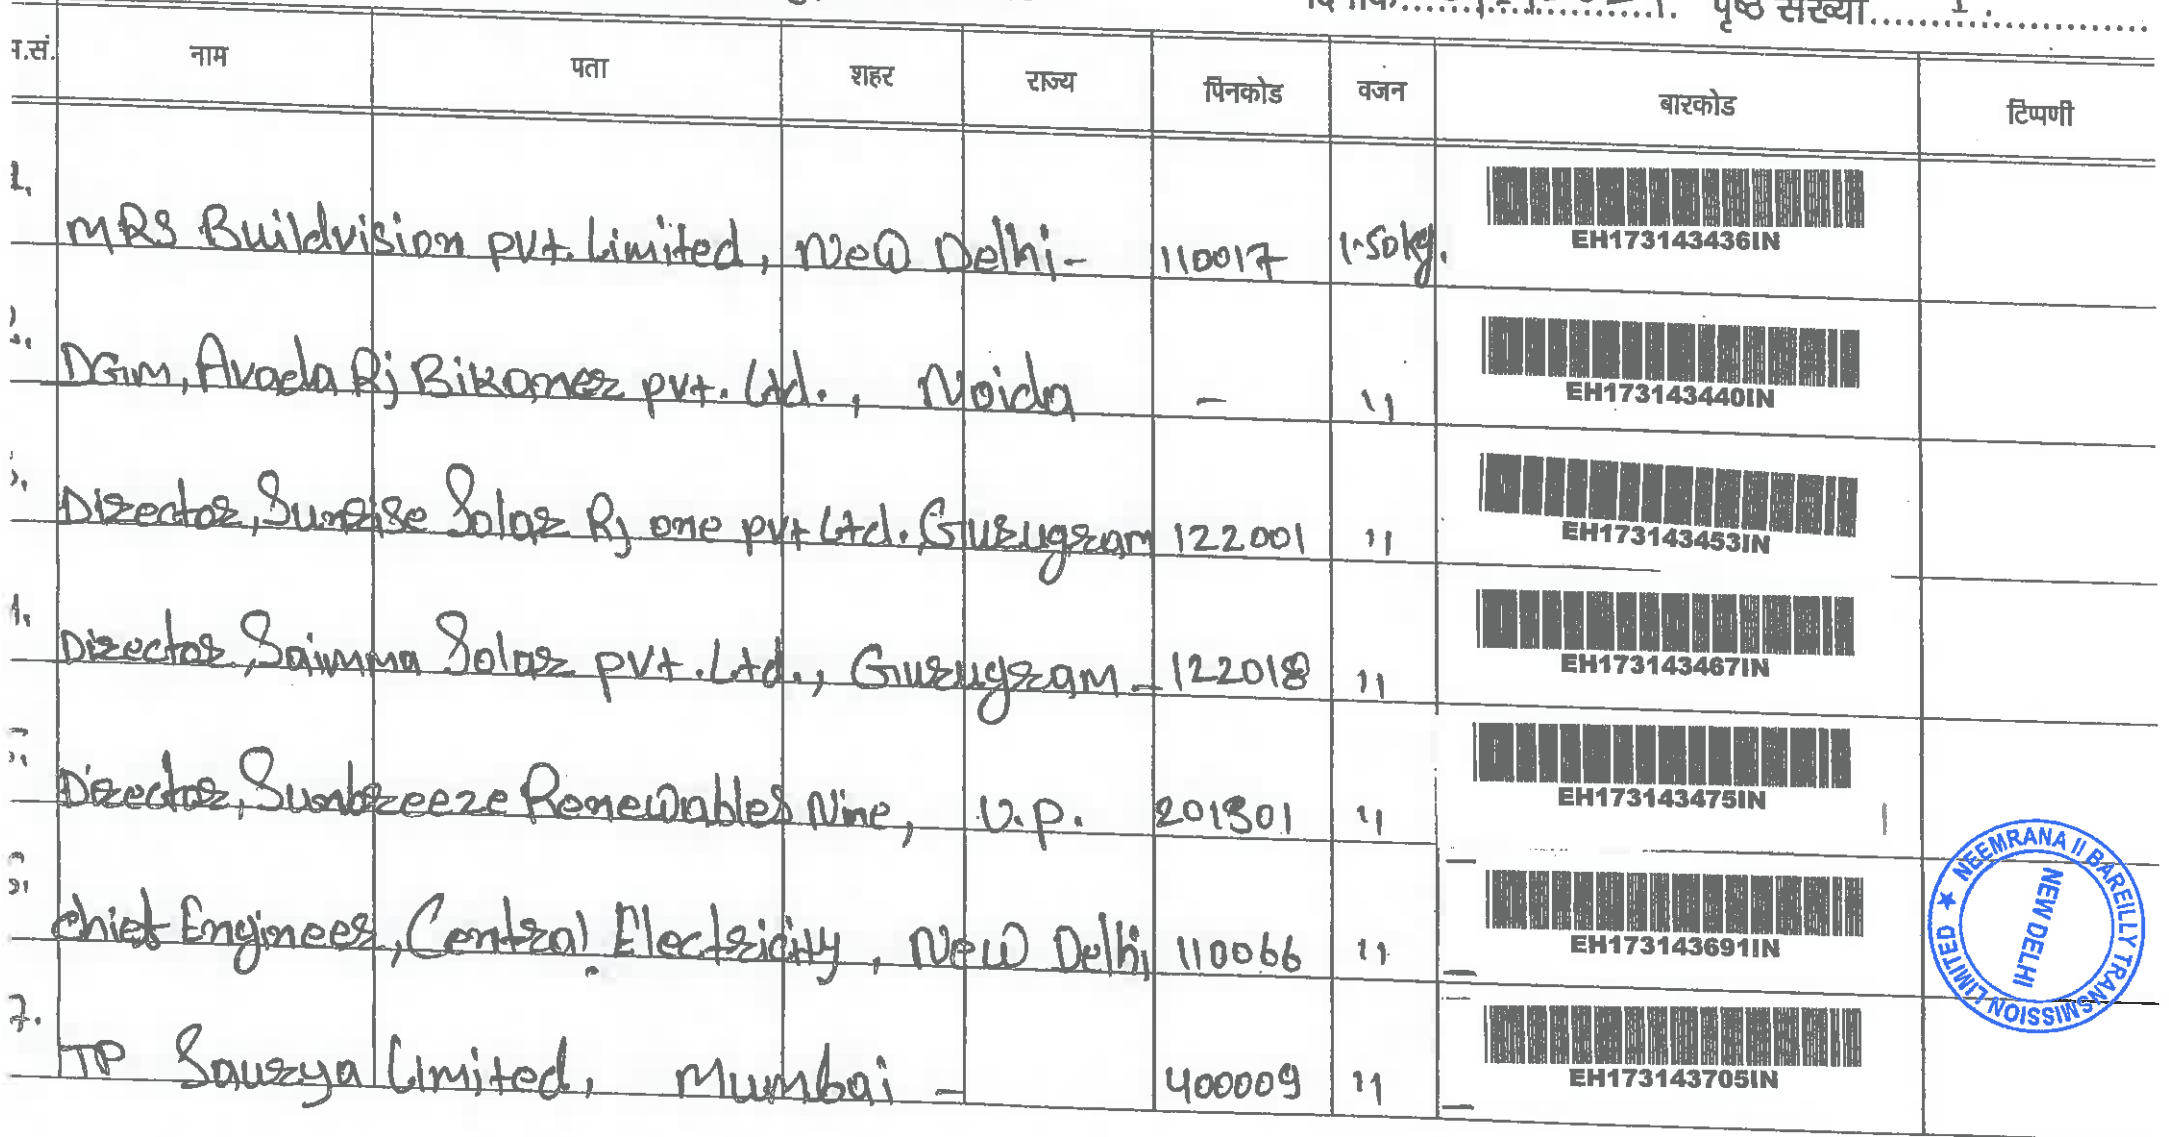 पृष्ठ संख्या
नाम पता शहर राज्य पिनकोड वजन बारकोड टिप्पणी
1. MRS Buildvision pvt. Limited, New Delhi- 110017 1.50kg. EH173143436IN
DGM, Avada Rj Bikaner pvt. Ltd., Noida - " EH173143440IN
Director, Sunrise Solar Rj one pvt Ltd. Gurugram 122001 " EH173143453IN
Director, Saimma Solar pvt. Ltd., Gurugram - 122018 " EH173143467IN
Director, Sunbreeze Renewables Nine, U.P. 201301 " EH173143475IN
Chief Engineer, Central Electricity, New Delhi 110066 " EH173143691IN
7. TP Saurya Limited, Mumbai - 400009 " EH173143705IN
NEEMRANA II BAREILLY TRANSMISSION LIMITED ★
NEW DELHI